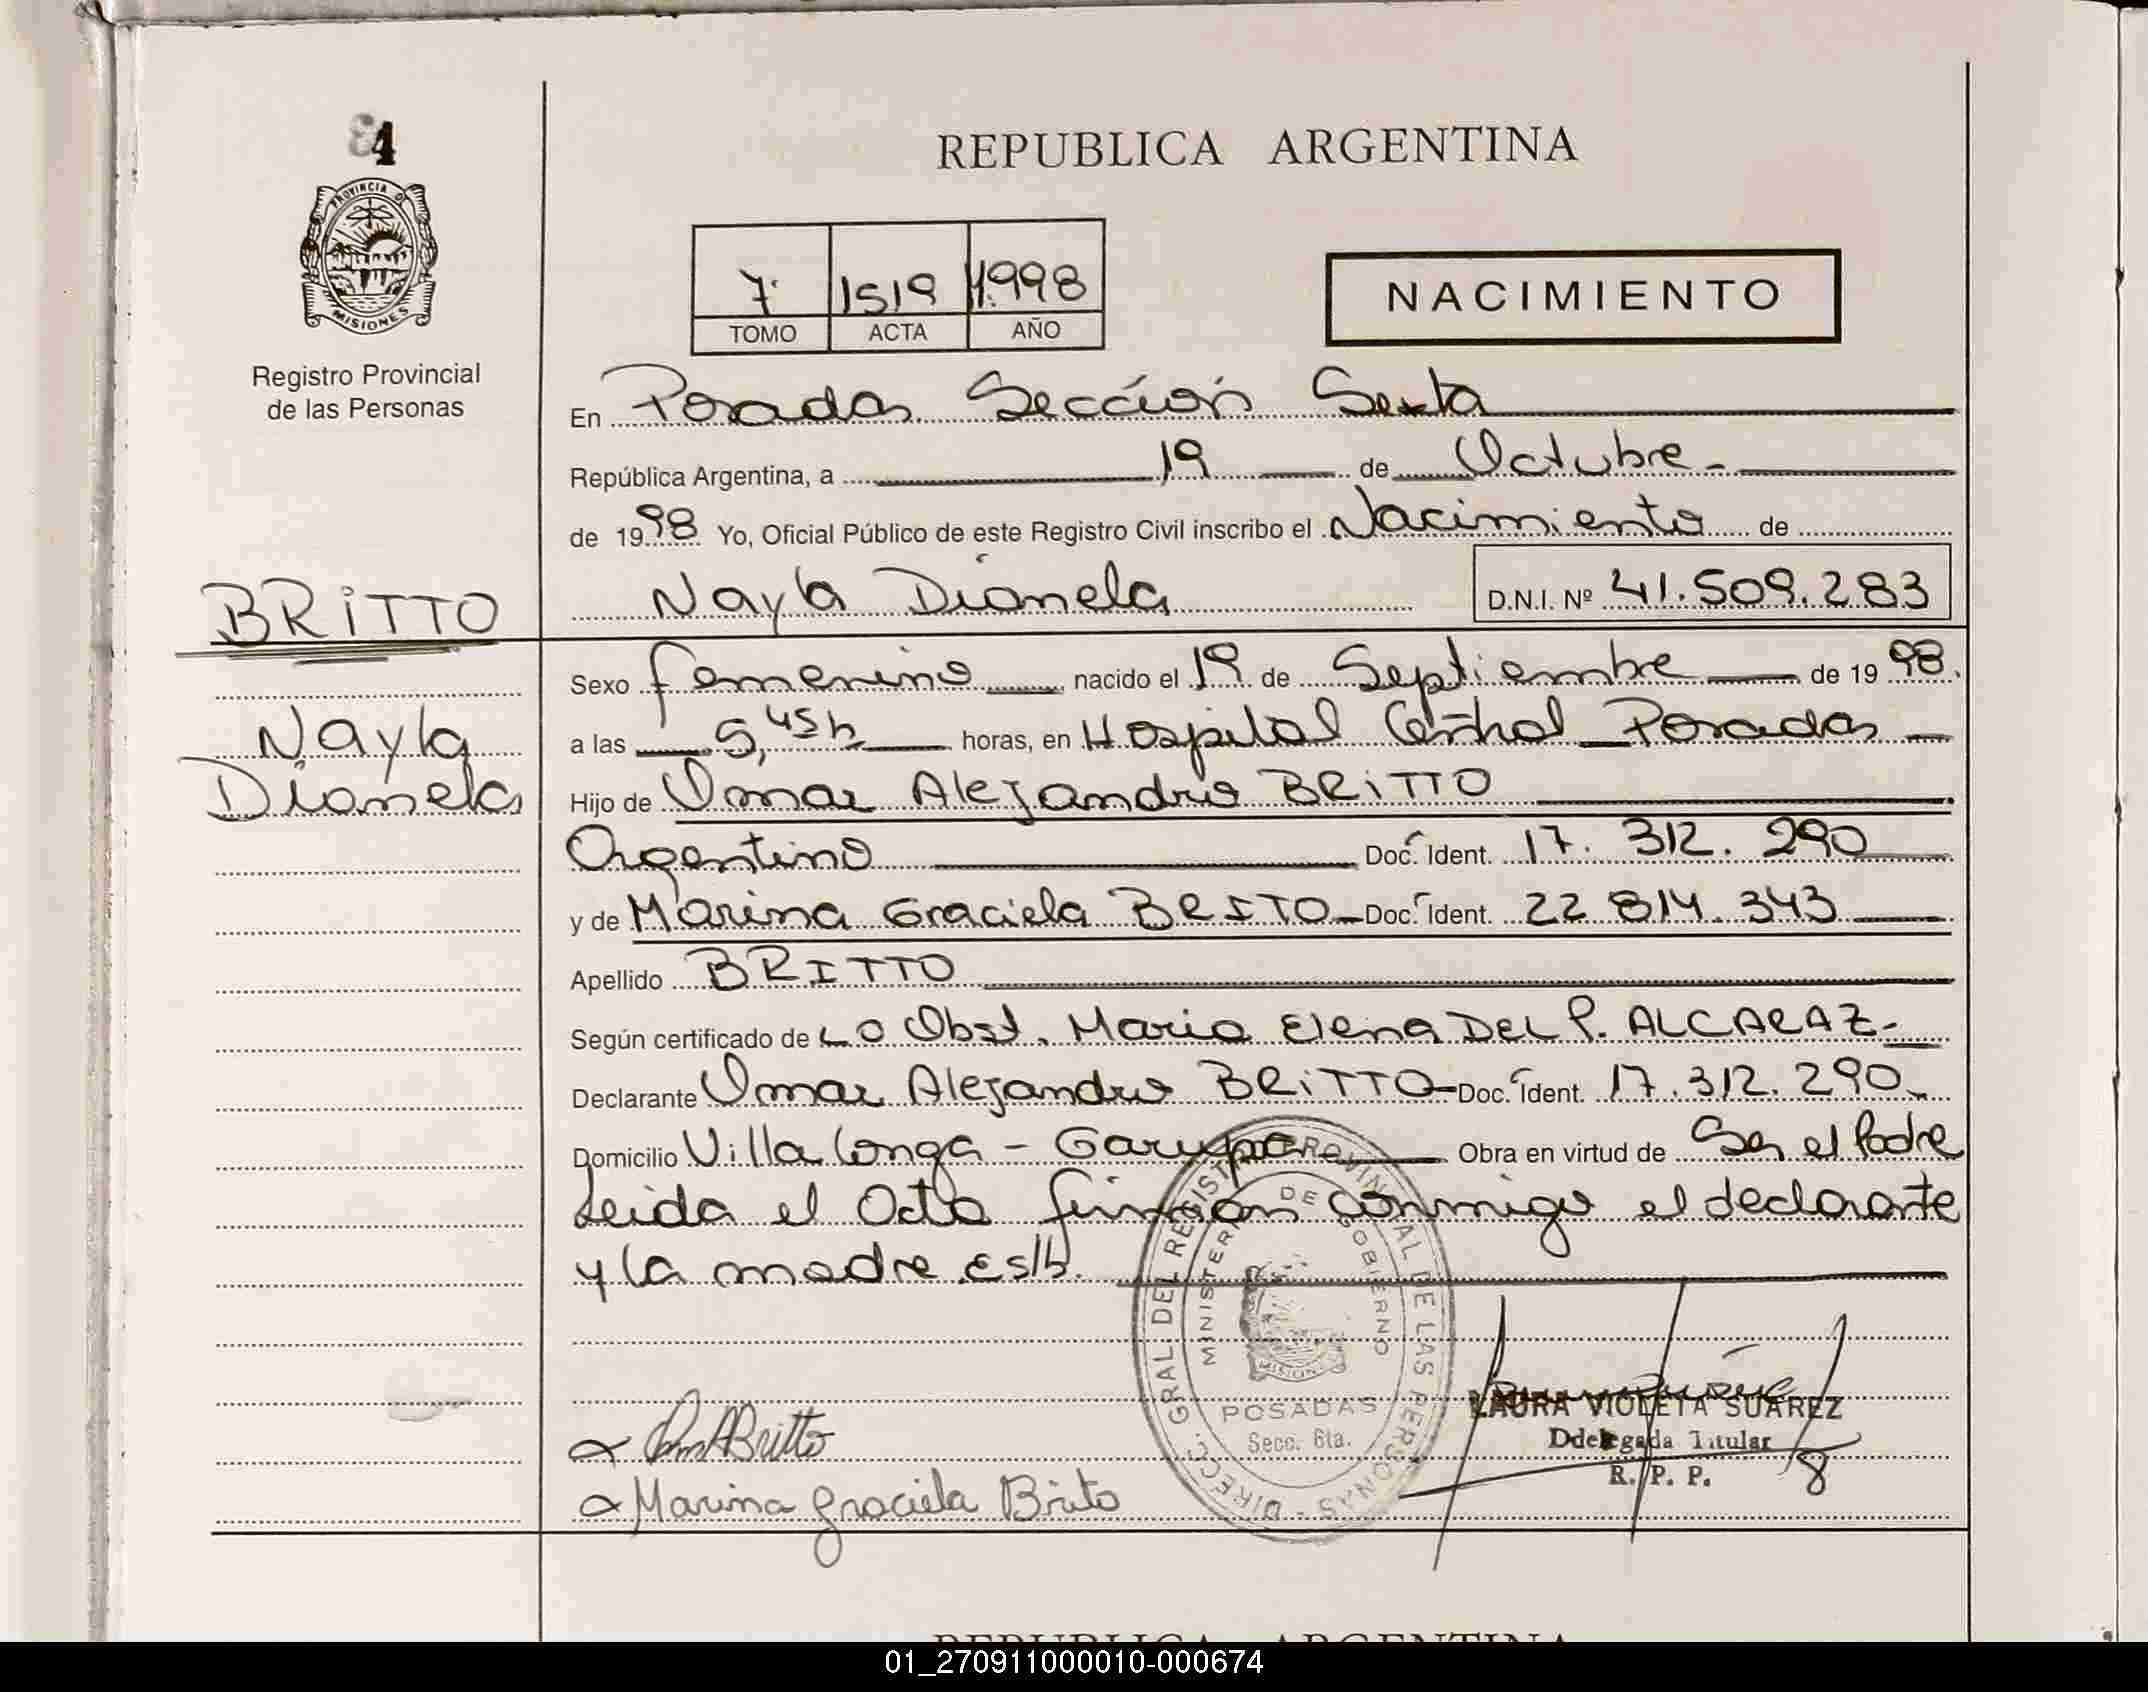 4
PROVINCIA D
MISIONES
Registro Provincial
de las Personas
REPUBLICA ARGENTINA
7 1519 1.998
TOMO ACTA AÑO
NACIMIENTO
En Posadas Sección Sexta
República Argentina, a 19 de Octubre
de 1998 Yo, Oficial Público de este Registro Civil inscribo el Nacimiento de
Nayla Dianela D.N.I. Nº 41.509.283
BRITTO
Nayla
Dianela
Sexo femenino nacido el 19 de Septiembre de 1998.
a las 5,45h horas, en Hospital Central Posadas
Hijo de Omar Alejandro BRITTO
Argentino Doc. Ident. 17. 312. 290
y de Marina Graciela BRITO Doc. Ident. 22 814. 343
Apellido BRITTO
Según certificado de La Obst. Maria Elena DEL P. ALCARAZ
Declarante Omar Alejandro BRITTO Doc. Ident. 17.312.290
Domicilio Villa Longa - Garupa Obra en virtud de Ser el Padre
Leida el Acta firman conmigo el declarante
y la madre Es/b.
DIRECC. GRAL. DEL REGISTRO PROVINCIAL DE LAS PERSONAS
MINISTERIO DE GOBIERNO
MISIONES
POSADAS
Secc. 6ta.
Britto
Marina Graciela Brito
LAURA VIOLETA SUAREZ
Ddelegada Titular
R. P. P.
REPUBLICA ARGENTINA
01_270911000010-000674